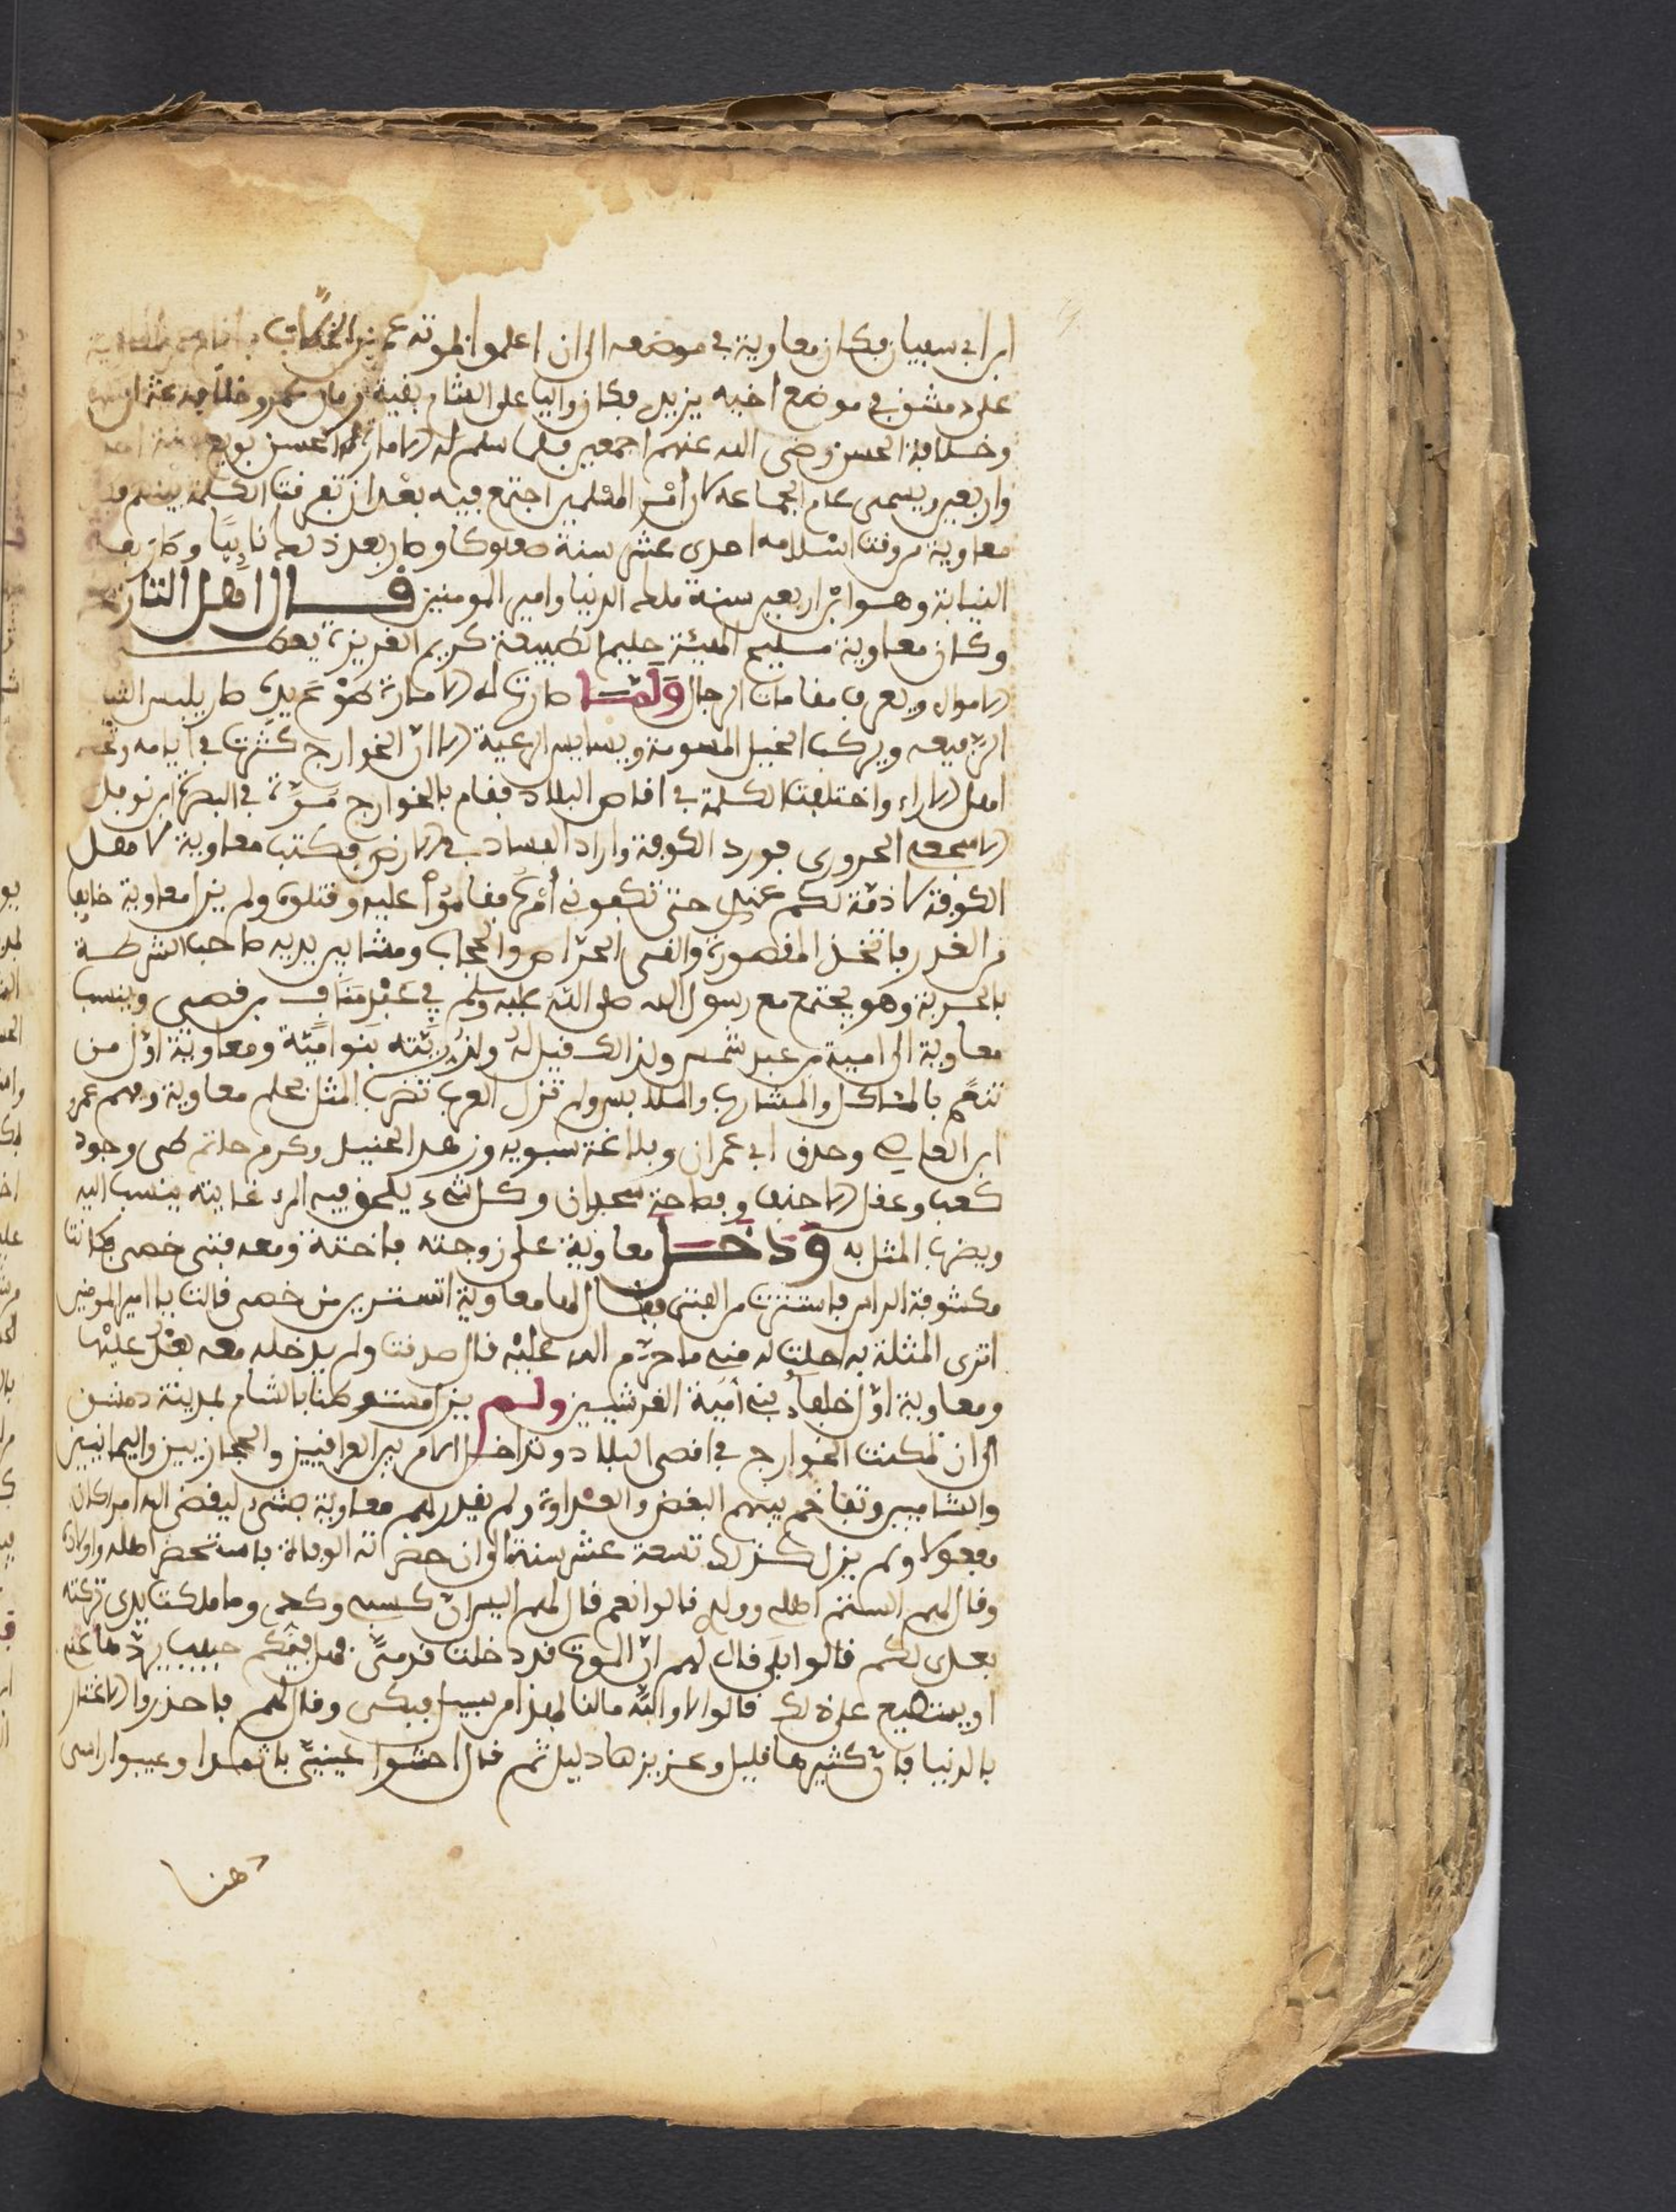 ابن ابي سفيان فكان معاوية في موضعه الى ان اعلموا بموته عمر بن الخطاب
على دمشق في موضع اخيه يزيد فكان واليا على الشام بقية زمان عمر وخلافة عثمان
وخلافة الحسن رضي الله عنهم اجمعين فلما سلم له الامارة الحسن بويع سنة احد
واربعين ويسمى عام الجماعة لان أمْر المسلمين اجتمع فيه بعد ان تفرقت الكلمة بينهم
معاوية من وقت اسلامه احدى عشر سنة صعلوكا وصار بعد ذلك نايبًا وكان بعد
النيابة وهو ابن اربعين سنة ملك الدنيا وامير المومنين قال اهل التاريخ
وكان معاوية مليح الهيئة حليم الطبيعة كريم الغريزة يعطي
الاموال ويعرف مقامات الرجال ولمّا صارت له الامارة طَوْع يَدِهِ صار يلبس الثياب
الرّفيعه ويركب الخيل المسومة ويسايس الرعية الا انّ الخوارج كثرت في أيامه
اهل الاراء واختلفت الكلمة في اقاصي البلاد فقام بالخوارج مَرّة في البصرة ابن نوفل
الاشجعي الحروري فورد الكوفة واراد الفساد في الارض فكتب معاوية لاهل
الكوفة لا ذمّة لكم عندي حتى تكفوني أمْرَه فقامُوا عليه وقتلوه ولم يزل معاوية خايفا
من الغدر فاتخذ المقصورة والقى الحرّاس والحجاب ومشا بين يديه صاحب الشرطة
بالحربة وهو يجتمع مع رسول الله صلى الله عليه وسلم في عَبْد مَنَاف بن قصي وينسب
معاوية الى امية بن عبد شمس ولذالك قيل لهُ ولذُرِّيّته بَنوا أميّة ومعاوية اوّل من
تنعّم بالمئاكل والمشارب والملابس ولم تزل العرب تضرب المثل بحلم معاوية وفهم عمرو
ابن العاص وحذق ابي عمران وبلاغة سبويه وزهد الجنيد وكرم حاتم طي وجود
كعب وعقل الاحنف وفصاحة سحبان وكل شيء يلحق فيه المرء غايته ينسب اليه
ويضرب المثل به ودخل معاوية على زوجته فاختة ومعه فتى خصي فكانت
مكشوفة الراس فاستترت من الفتى فقال لها معاوية اتستترين من خصي قالت يا امير المومنين
اترى المثلة به احلت له مني ما حرّم الله عليْه قال صدقت ولم يدخله معه بعْدُ عليْها
ومعاوية اوّل خلفاءُ بني أمَيّة القرشيين ولم يزل مستوطنا بالشام بمدينة دمشق
الى ان تمكنت الخوارج في اقصى البلاد وتداخل الامر بين العراقيين والحجازيين واليمانيين
والشاميين وتفاخم بينهم البغض والعداوة ولم يقدر لهم معاوية بشيء ليقضي الله امرا كان
مفعولا ولم يزل كذلك تسعة عشر سنة الى ان حضرته الوفاة فاستحضر اهله واولاده
وقال لهم الستم اهلي وولدي قالوا نعم قال لهم اليس انّ كسبي وكدي وما ملكت يدي تركته
بعدي لكم قالوا بلى قال لهم انّ الموت قد دخلت قدميَّ فهل فيكم حبيب يردّها عني
او يستطيع على ذلك قالوا لا والله مالنا لهذا من سبيل فبكى وقال لهم فاحذروا الاغترار
بالدنيا فانّ كثيرها قليل وعزيزها دليل ثم قال احشوا عينيّ باثمدا وغيبوا راسي
هنا